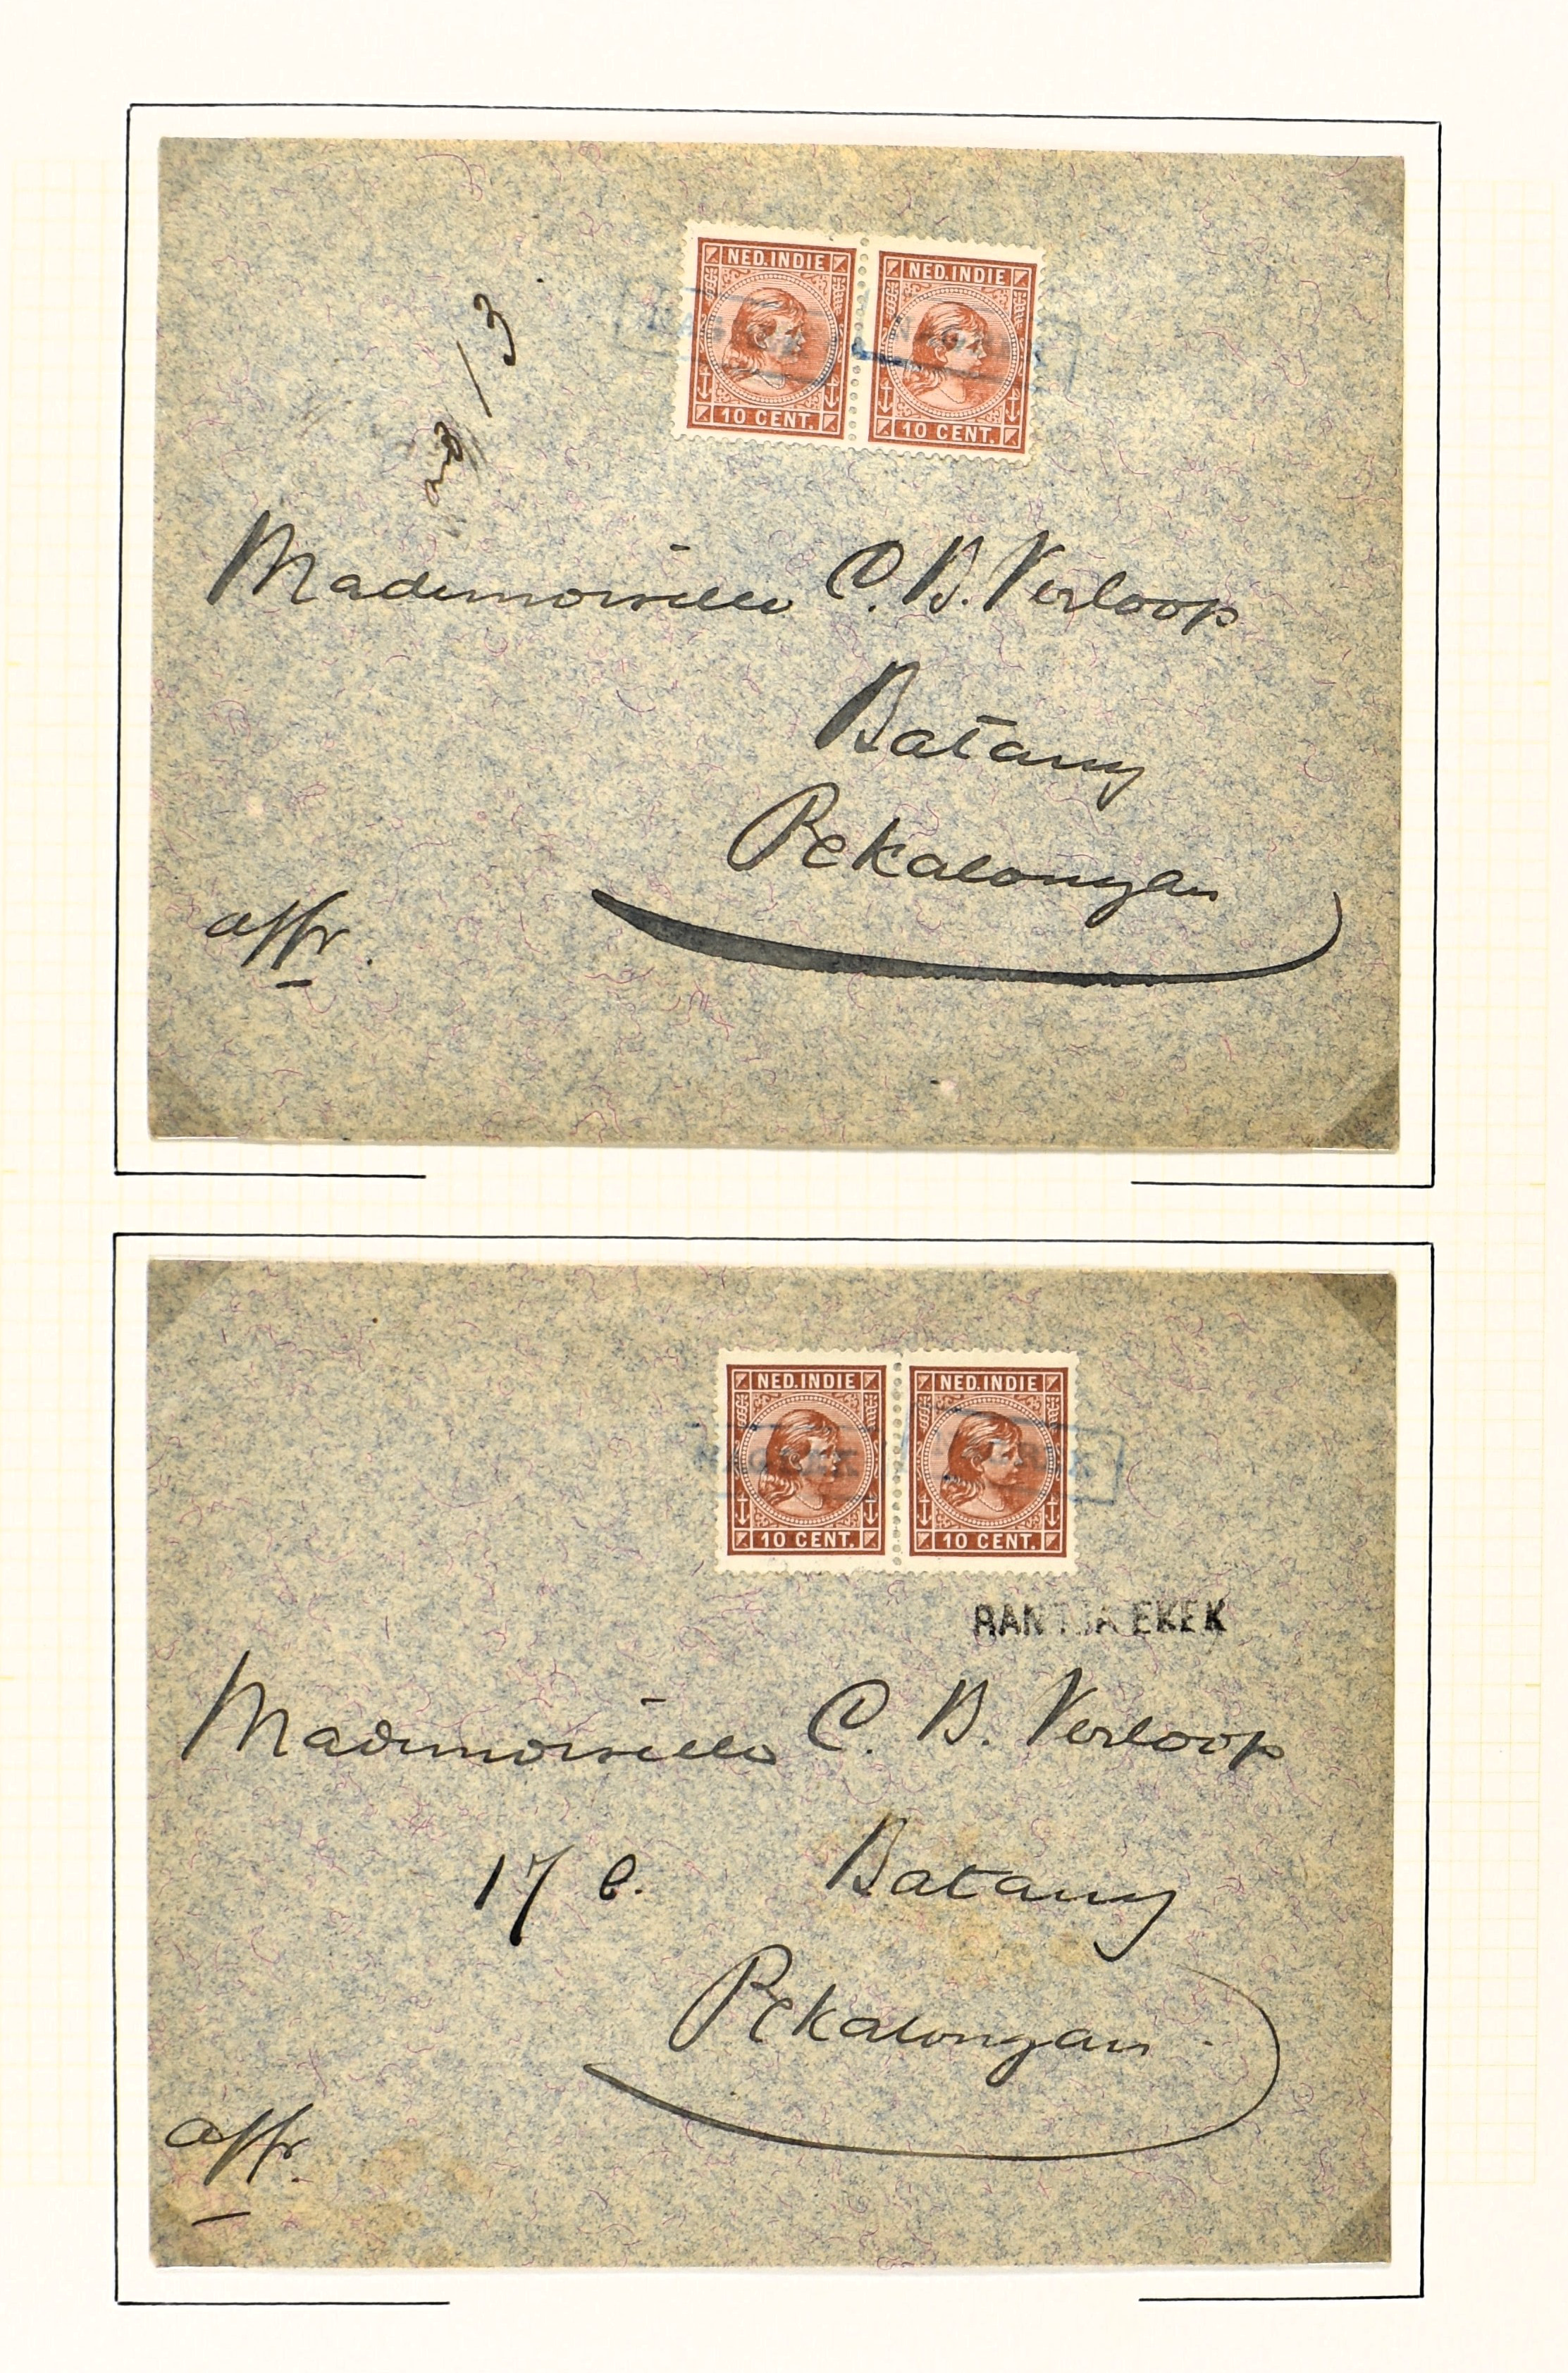 NED.INDIE NED.INDIE
10 CENT. 10 CENT.
13
Mademoiselle C. B. Verloop
Batang
Pekalongan
affr.
NED.INDIE NED.INDIE
NAGREK NAGREK
10 CENT. 10 CENT.
RANTJA EKEK
Mademoiselle C. B. Verloop
17 C. Batang
Pekalongan
affr.